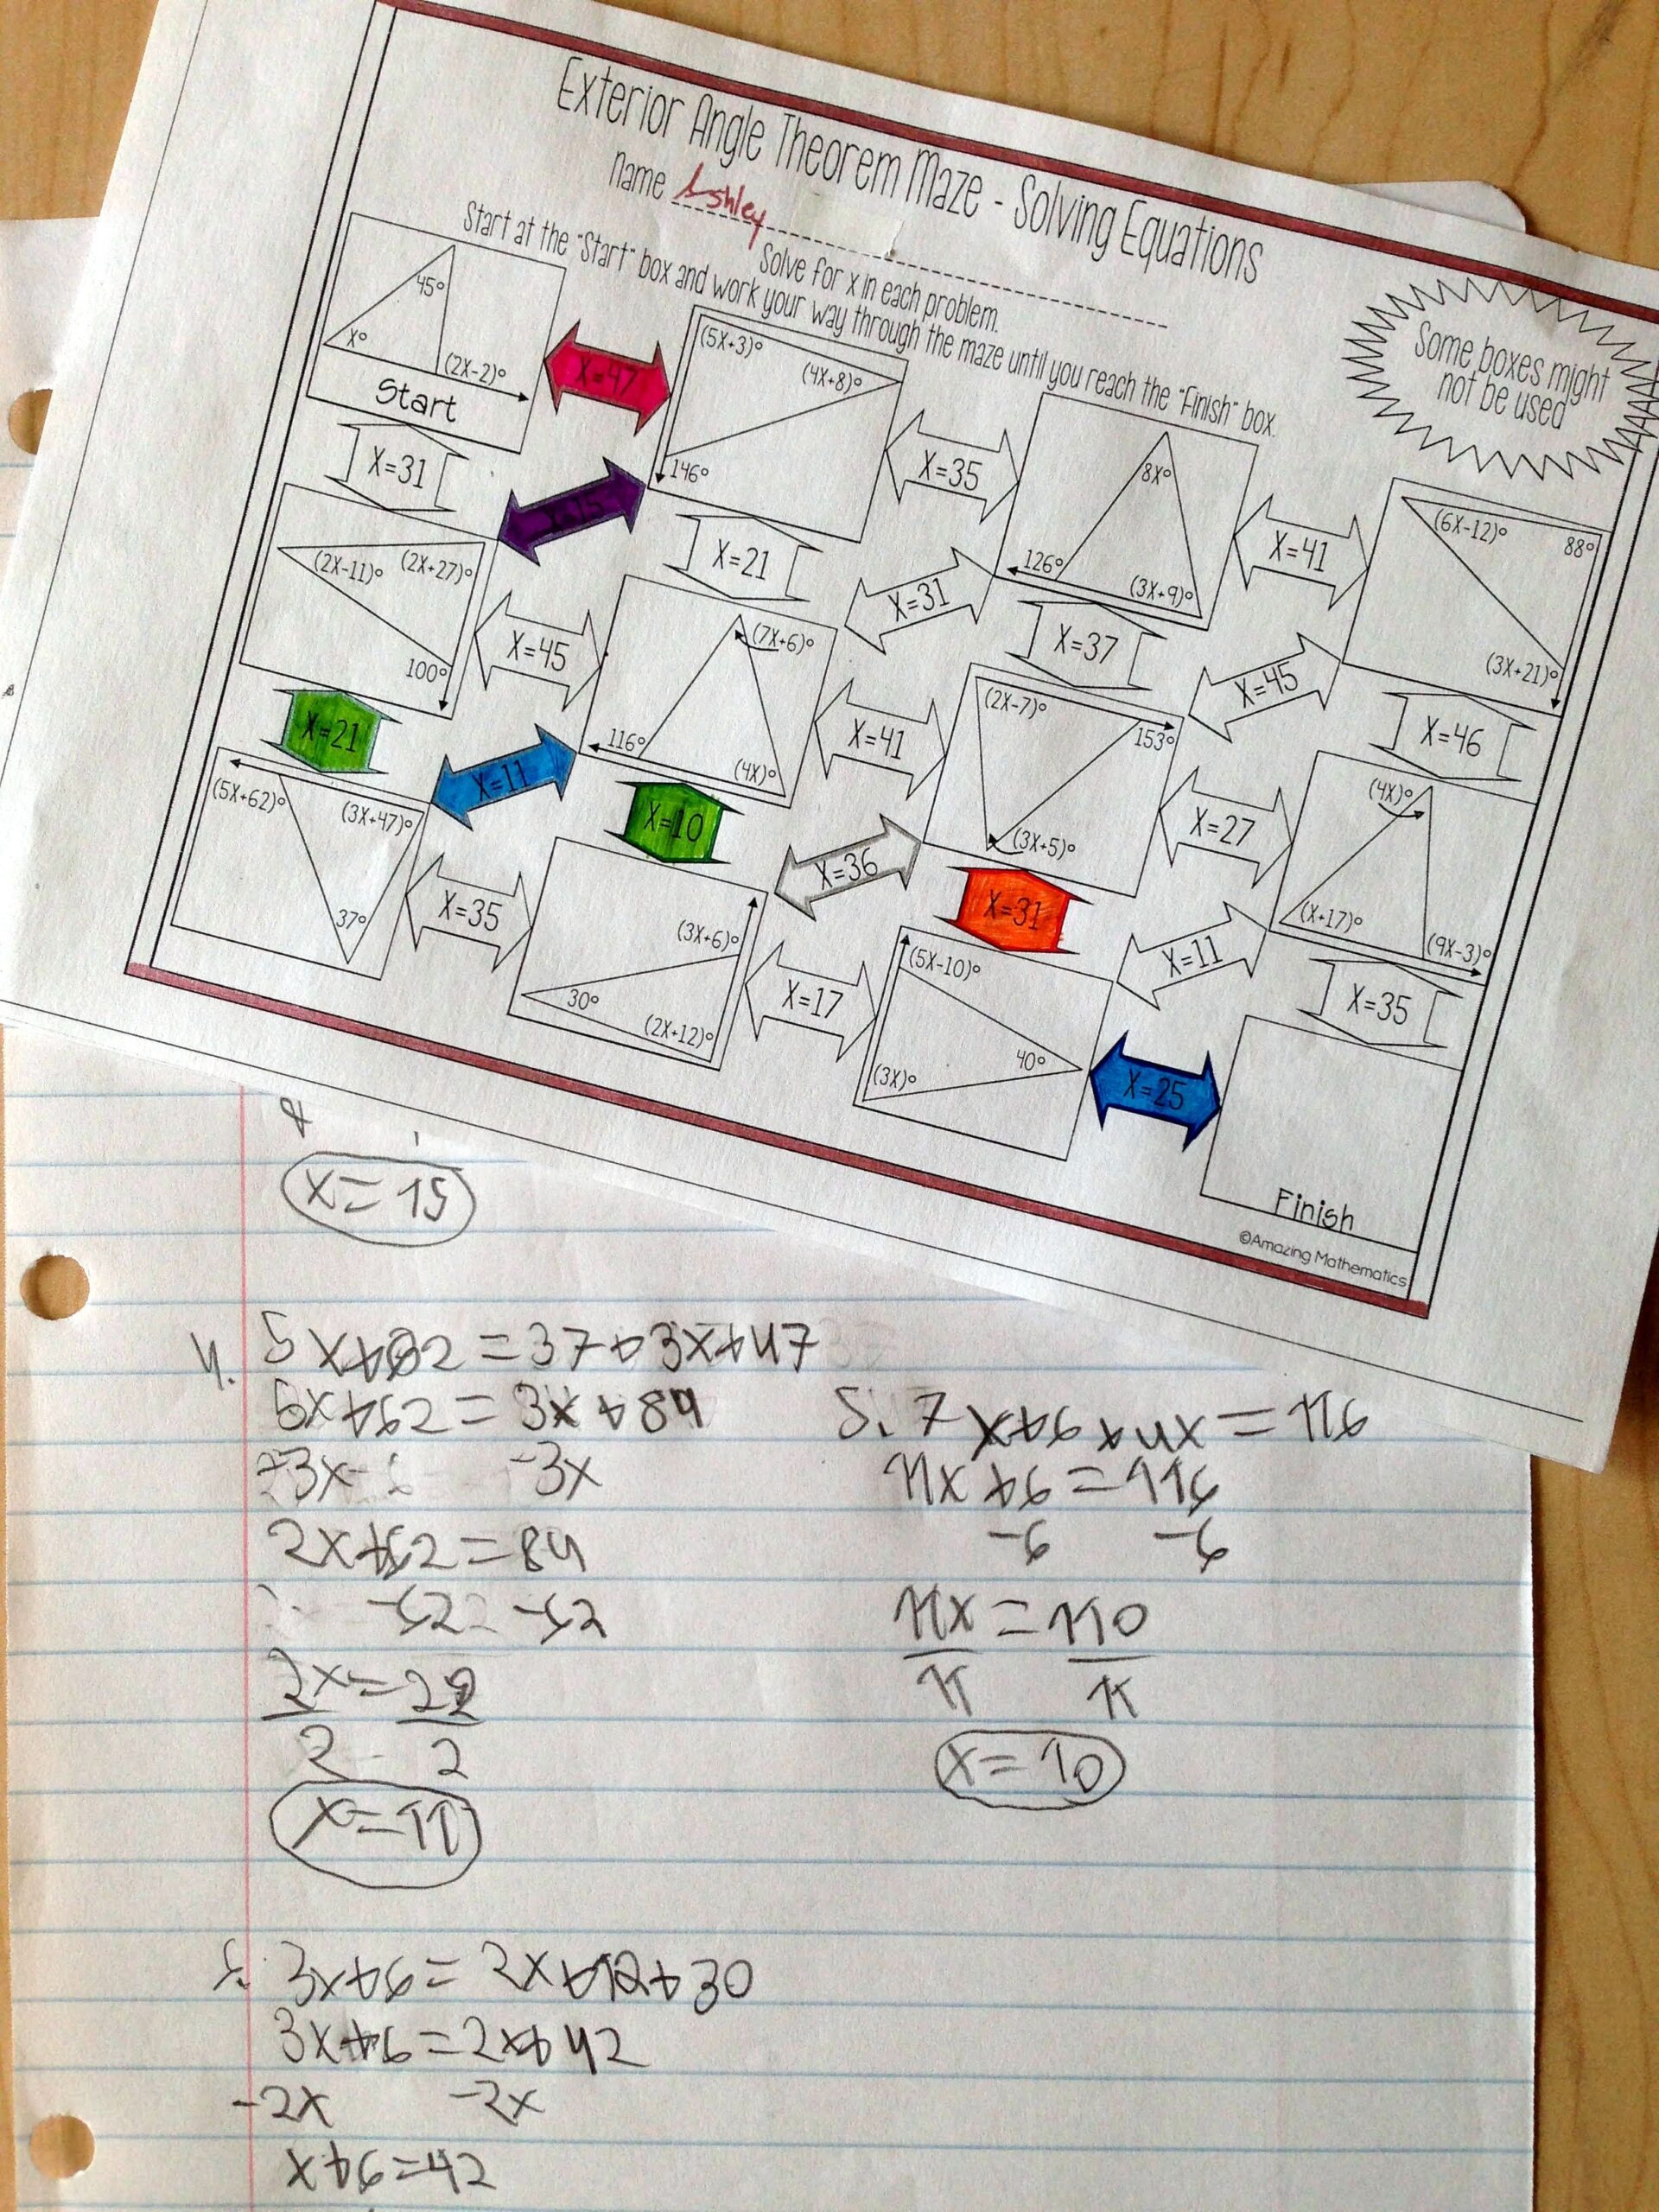 Exterior Angle Theorem Maze - Solving Equations
Name Ashley
Solve for x in each problem.
Start at the "Start" box and work your way through the maze until you reach the "Finish" box.
Some boxes might
not be used
45°
x°
(2x-2)°
Start
X=47
(5x+3)°
(4x+8)°
146°
X=35
8x°
126°
(3x+9)°
X=41
(6x-12)°
88°
(3x+21)°
X=31
X=15
X=21
X=31
X=37
X=45
X=46
(2x-11)°
(2x+27)°
100°
X=45
(7x+6)°
116°
(4x)°
X=41
(2x-7)°
153°
(3x+5)°
X=27
(4x)°
(x+17)°
(9x-3)°
X=21
X=11
X=10
X=36
X=31
X=11
X=35
(5x+62)°
(3x+47)°
37°
X=35
(3x+6)°
30°
(2x+12)°
X=17
(5x-10)°
40°
(3x)°
X=25
Finish
©Amazing Mathematics
x=15
4. 5x+62=37+3x+47
5x+62=3x+84
-3x -3x
2x+62=84
-62 -62
2x=22
2 2
x=11
5. 7x+6+4x=116
11x+6=116
-6 -6
11x=110
11 11
x=10
3x+6=2x+12+30
3x+6=2x+42
-2x -2x
x+6=42